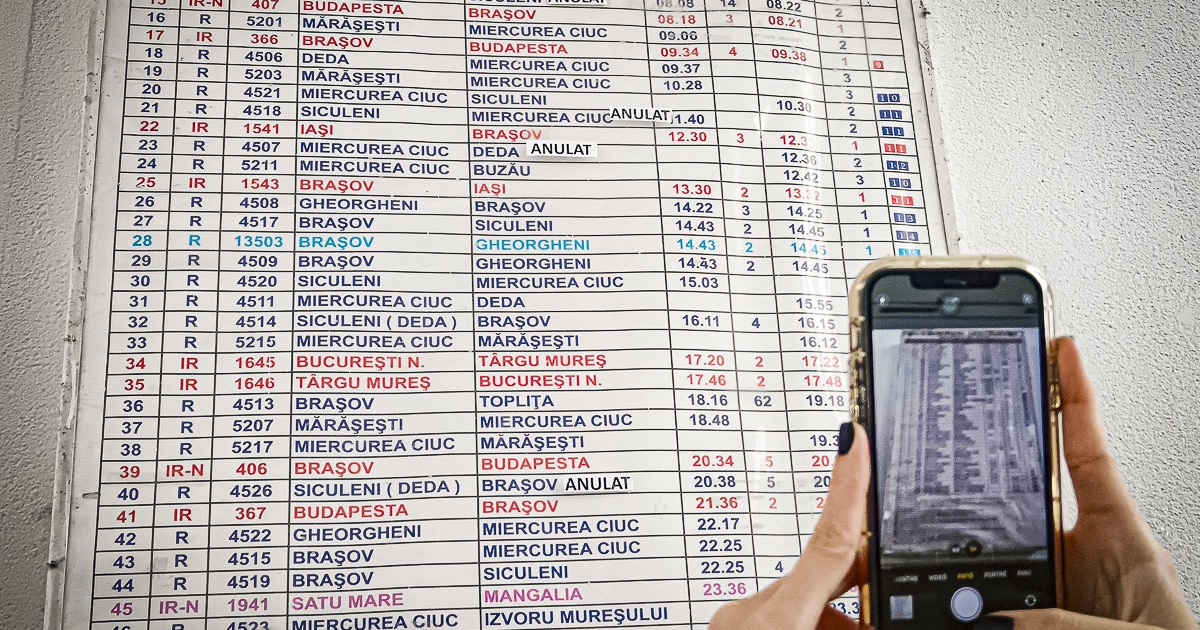 15 IR-N 407 BUDAPESTA SICULENI ANULAT 08.08 14 08.22 2
16 R 5201 MĂRĂŞEŞTI BRAŞOV 08.18 3 08.21 1
17 IR 366 BRAŞOV MIERCUREA CIUC 09.06 2
18 R 4506 DEDA BUDAPESTA 09.34 4 09.38 1 9
19 R 5203 MĂRĂŞEŞTI MIERCUREA CIUC 09.37 3
20 R 4521 MIERCUREA CIUC MIERCUREA CIUC 10.28 3 10
21 R 4518 SICULENI SICULENI 10.30 2 11
22 IR 1541 IAŞI MIERCUREA CIUC ANULAT 11.40 2 11
23 R 4507 MIERCUREA CIUC BRAŞOV 12.30 3 12.3 1 11
24 R 5211 MIERCUREA CIUC DEDA ANULAT 12.36 2 12
25 IR 1543 BRAŞOV BUZĂU 12.42 3 10
26 R 4508 GHEORGHENI IAŞI 13.30 2 13.32 1 11
27 R 4517 BRAŞOV BRAŞOV 14.22 3 14.25 1 13
28 R 13503 BRAŞOV SICULENI 14.43 2 14.45 1 14
29 R 4509 BRAŞOV GHEORGHENI 14.43 2 14.45 1
30 R 4520 SICULENI GHEORGHENI 14.43 2 14.45
31 R 4511 MIERCUREA CIUC MIERCUREA CIUC 15.03
32 R 4514 SICULENI ( DEDA ) DEDA 15.55
33 R 5215 MIERCUREA CIUC BRAŞOV 16.11 4 16.15
34 IR 1645 BUCUREŞTI N. MĂRĂŞEŞTI 16.12
35 IR 1646 TÂRGU MUREŞ TÂRGU MUREŞ 17.20 2 17.22
36 R 4513 BRAŞOV BUCUREŞTI N. 17.46 2 17.48
37 R 5207 MĂRĂŞEŞTI TOPLIŢA 18.16 62 19.18
38 R 5217 MIERCUREA CIUC MIERCUREA CIUC 18.48
39 IR-N 406 BRAŞOV MĂRĂŞEŞTI 19.3
40 R 4526 SICULENI ( DEDA ) BUDAPESTA 20.34 5 20
41 IR 367 BUDAPESTA BRAŞOV ANULAT 20.38 5 20
42 R 4522 GHEORGHENI BRAŞOV 21.36 2
43 R 4515 BRAŞOV MIERCUREA CIUC 22.17
44 R 4519 BRAŞOV MIERCUREA CIUC 22.25
45 IR-N 1941 SATU MARE SICULENI 22.25 4
46 R 4523 MIERCUREA CIUC MANGALIA 23.36
IZVORU MUREŞULUI 23.3